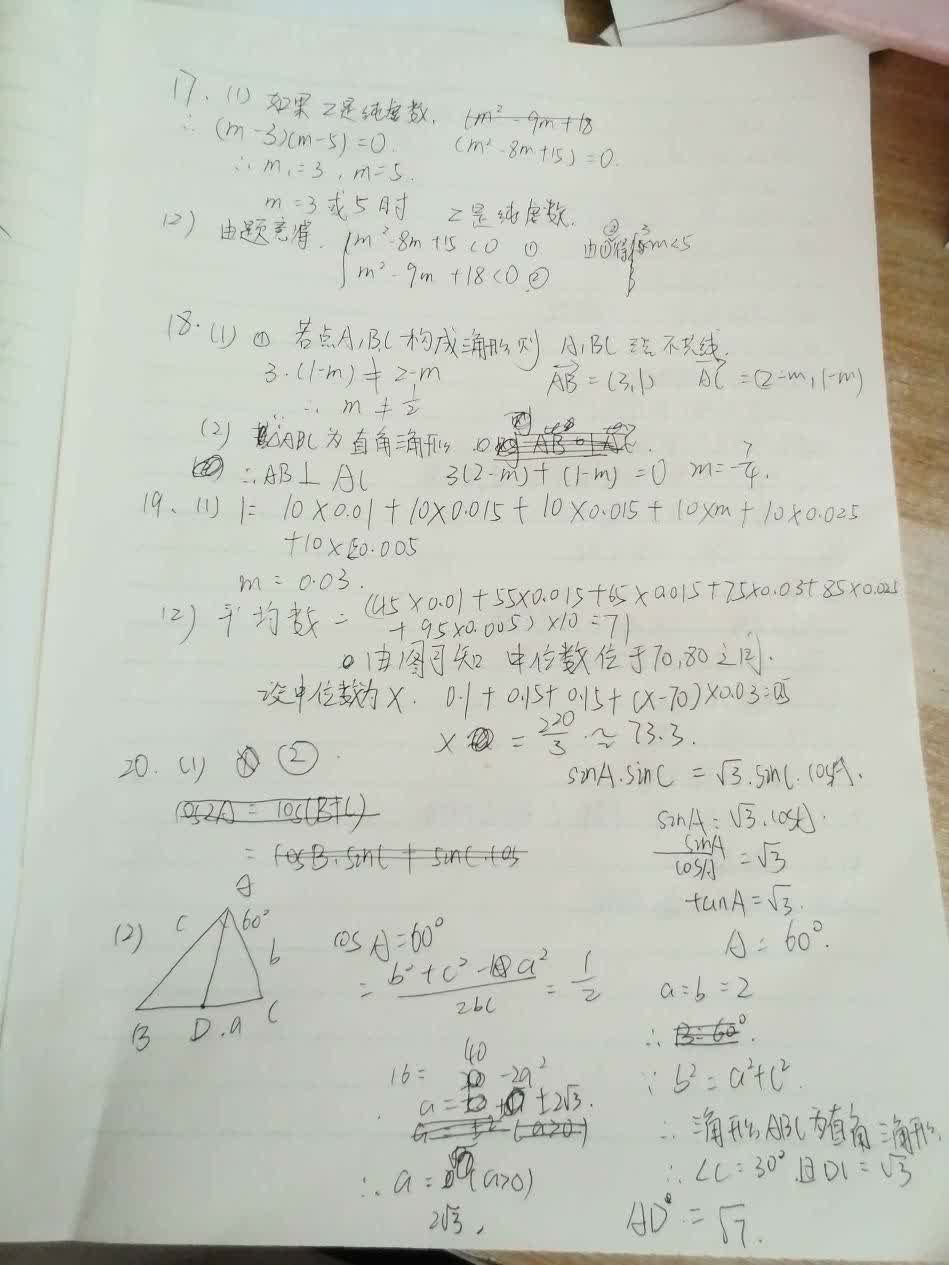 17. (1) 如果z是纯虚数. (m²-9m+18
∴ (m-3)(m-5)=0. (m²-8m+15)=0.
∴ m₁=3, m=5.
m=3或5时 z是纯虚数.
(2) 由题意得. {m²-8m+15<0 ①
m²-9m+18<0 ②
18. (1) ① 若点A,B,C构成三角形则 A,B,C 不共线.
3·(1-m)≠2-m AB=(3,1) AC=(2-m,1-m)
∴ m≠1/2
(2) ABC为直角三角形
∴AB⊥AC 3(2-m)+(1-m)=0 m=7/4.
19. (1) 1= 10×0.01+10×0.015+10×0.015+10×m+10×0.025
+10×0.005
m=0.03.
(2) 平均数=(45×0.01+55×0.015+65×0.015+75×0.03+85×0.025
+95×0.005)×10=71
由图可知 中位数位于70,80之间.
设中位数为x. 0.1+0.15+0.15+(x-70)×0.03=0.5
x = 220/3 ≈ 73.3.
20. (1) ②.
sinA·sinC=√3·sinC·cosA.
cos2A=cos(B+C)
sinA=√3·cosA.
=cosB·sinC+sinC·cos
sinA/cosA=√3
tanA=√3.
A=60°.
(2) A c 60° b B D a C
cosA=60°
=b²+c²-a²/2bc=1/2
a=b=2
∴ B=60°.
16=40-2a²
∵ b²=a²+c².
a= ±2√3.
∴ 三角形ABC为直角三角形.
∴ a= (a>0)
∴ ∠C=30°且DC=√3
2√3.
AD=√7.